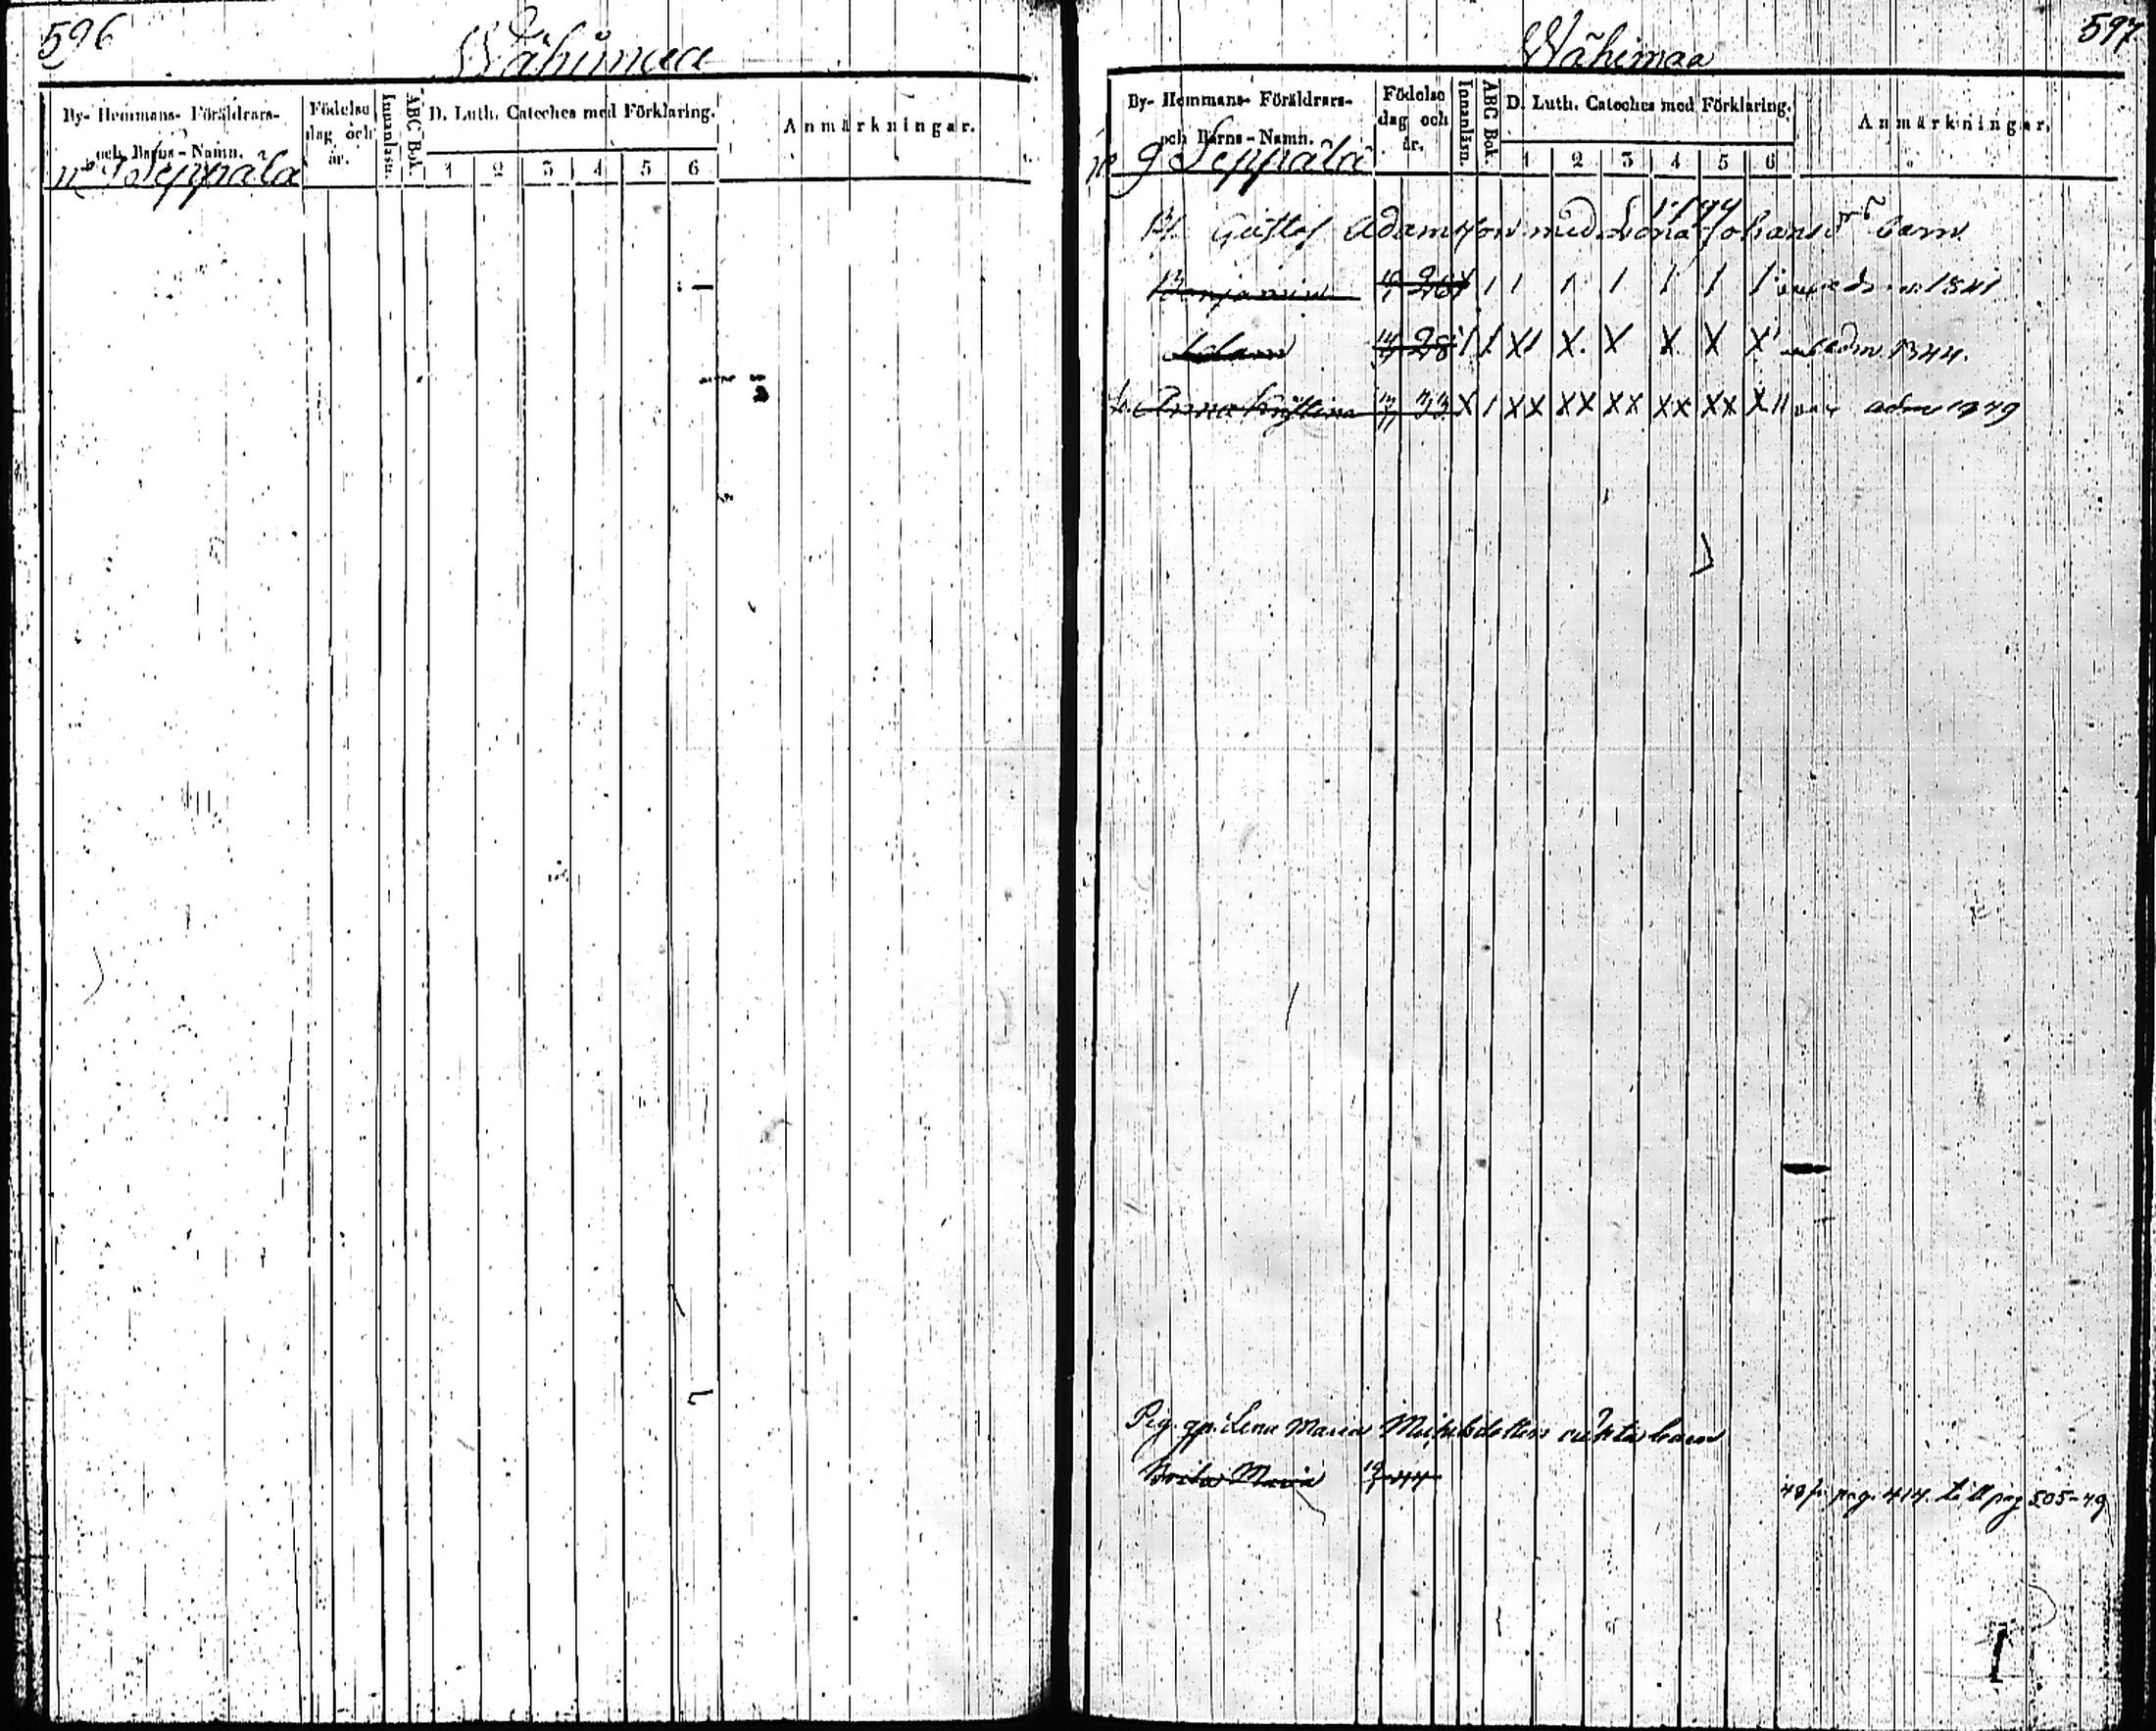 596
Wähimaa
By- Hemmans- Föräldrars- och Barns-Namn.
Födelse dag och år.
Innanläsn.
ABC Bok.
D. Luth. Cateches med Förklaring.
1 2 3 4 5 6
Anmärkningar.
Seppälä
597
Wähimaa
By- Hemmans- Föräldrars- och Barns-Namn.
Födelse dag och år.
Innanläsn.
ABC Bok.
D. Luth. Cateches med Förklaring.
1 2 3 4 5 6
Anmärkningar.
9 Seppälä
Gustaf Adamsson med Lena Johansd:r barn
Benjamin 26 1841
Adam 28 X X X X X X adm. 1844.
Anna Kristina 33 X XX XX XX XX XX X adm 1849
Pig. Lena Maria Michelsdotters oäkta barn
Maria 44 pag. 414. till pag 505-49